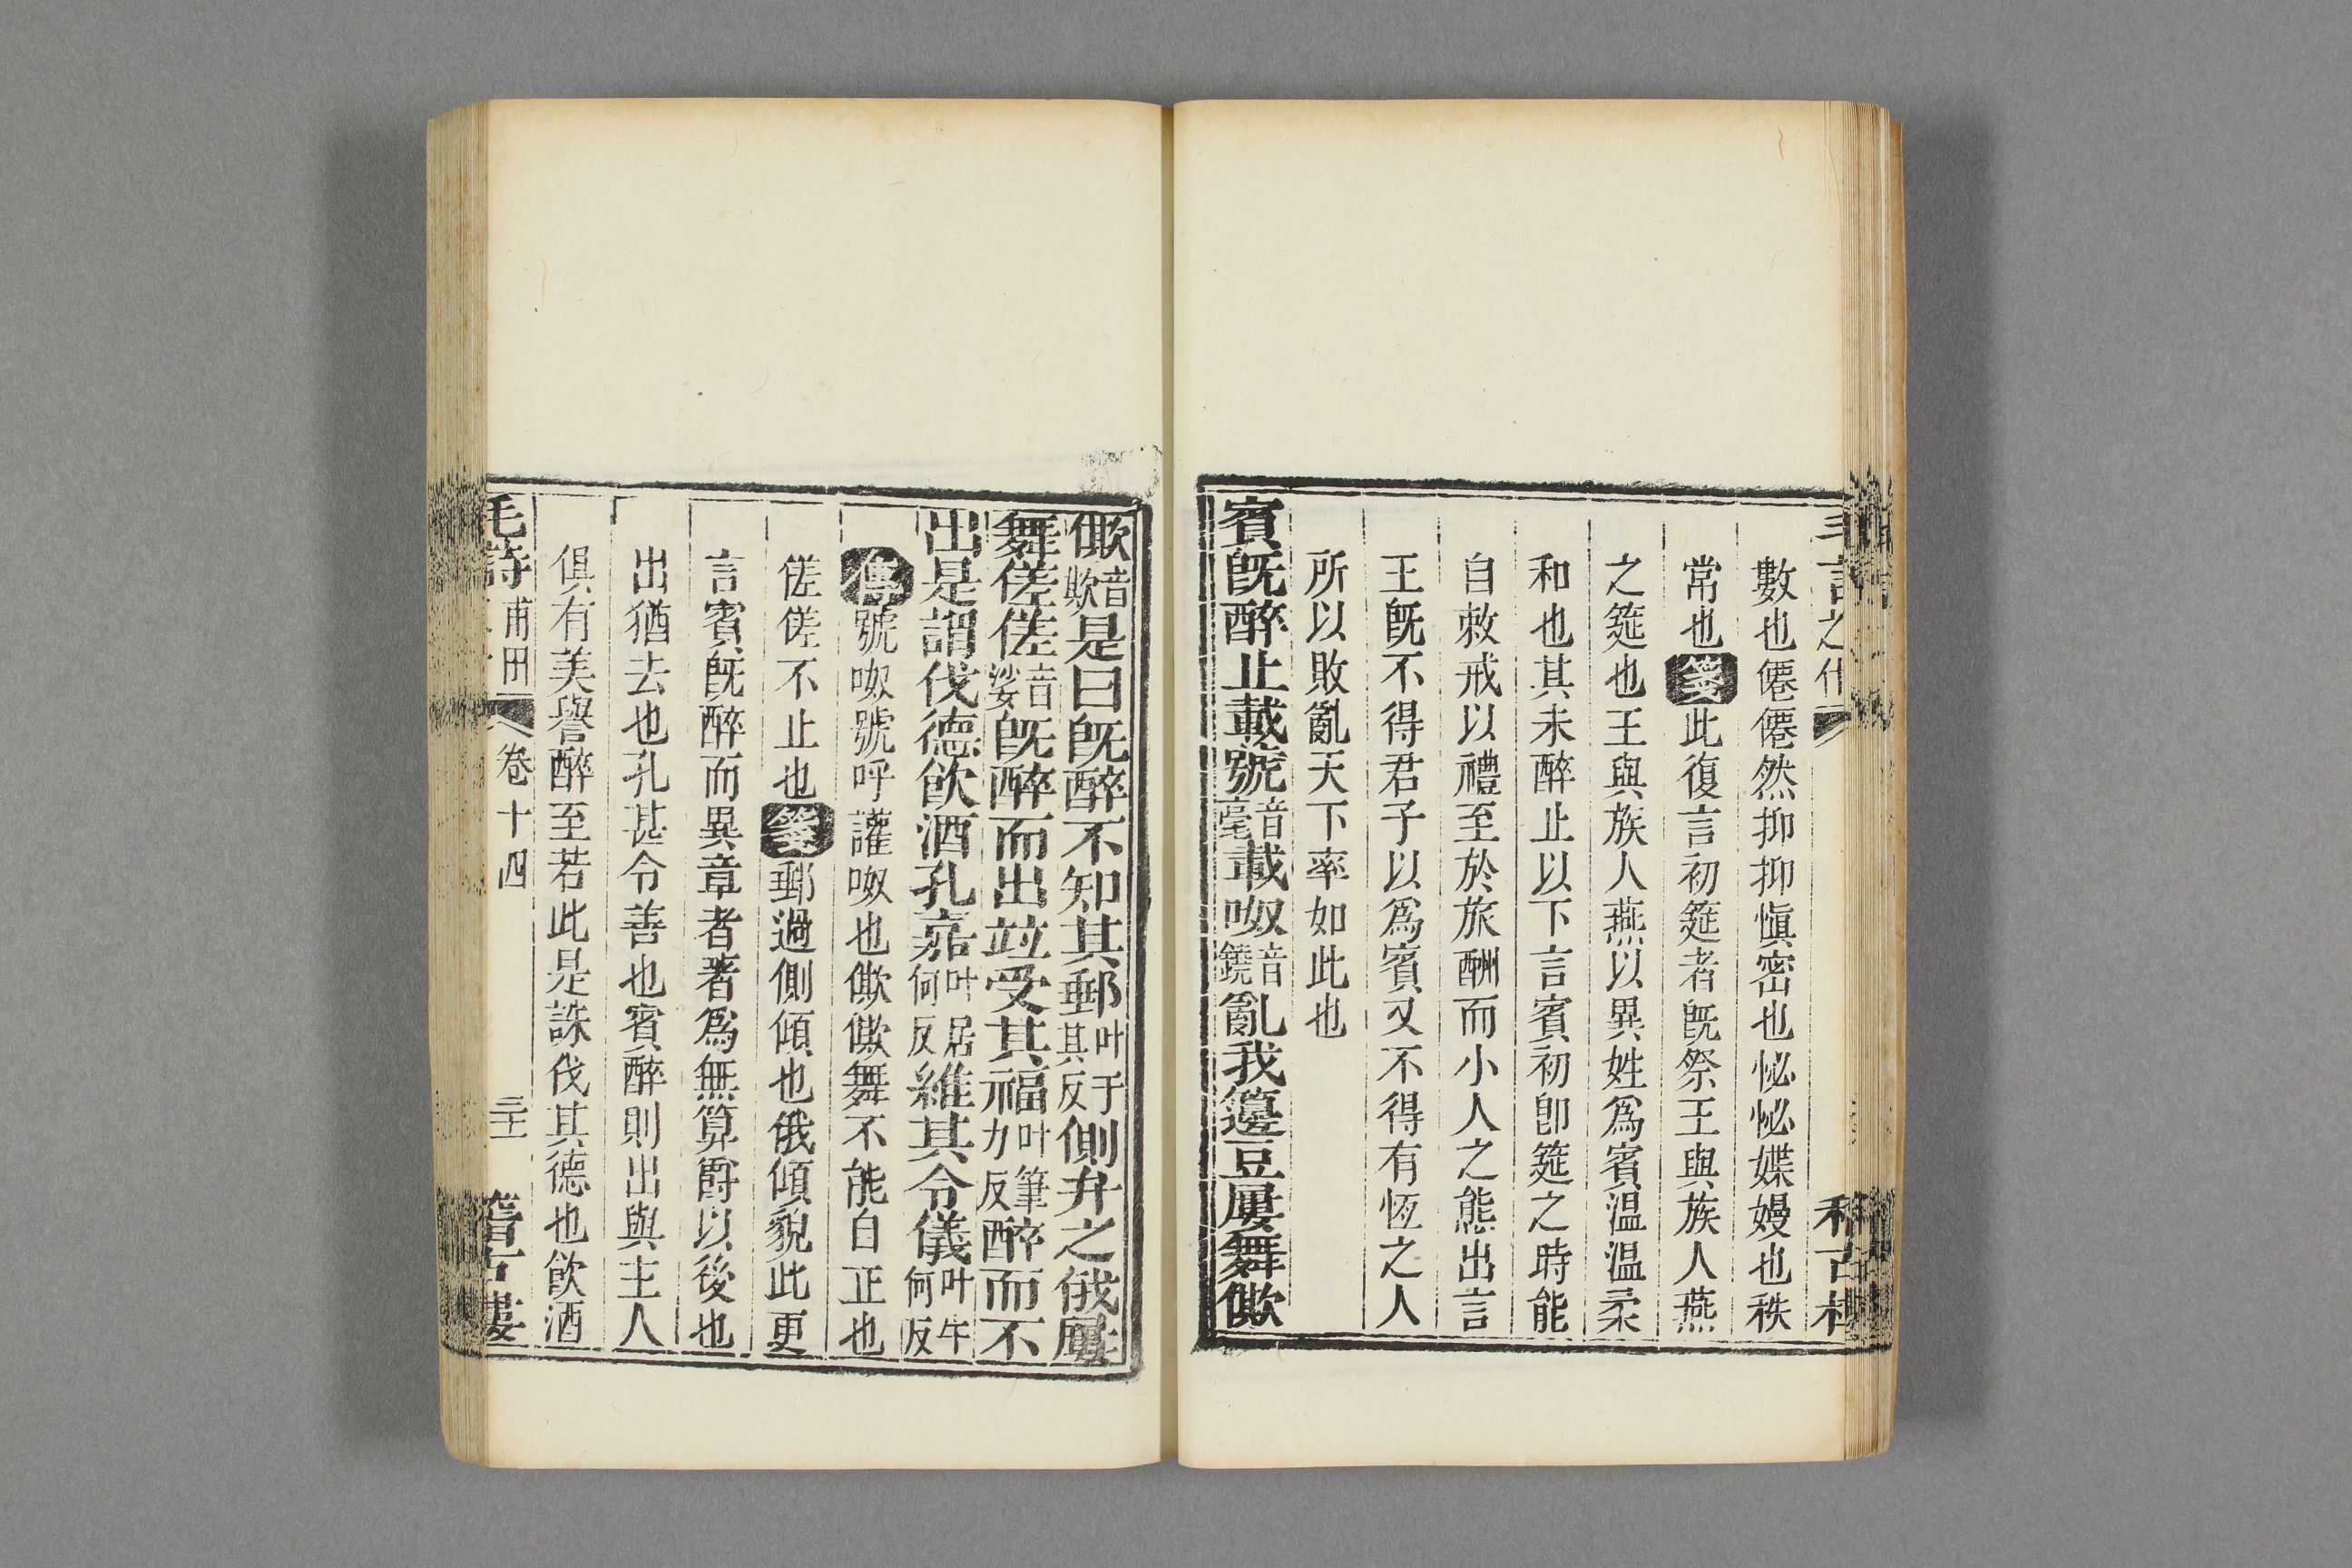 數也僊僊然抑抑愼密也怭怭媟嫚也秩
常也箋此復言初筵者旣祭王與族人燕
之筵也王與族人燕以異姓爲賓温温柔
和也其未醉止以下言賓初卽筵之時能
自敕戒以禮至於旅酬而小人之態出言
王旣不得君子以爲賓又不得有恆之人
所以敗亂天下率如此也
賓旣醉止載號音毫載呶音鐃亂我籩豆屢舞僛
僛音欺是曰旣醉不知其郵叶于其反側弁之俄屢
舞傞傞音娑旣醉而出竝受其福叶筆力反醉而不
出是謂伐德飮酒孔嘉叶居何反維其令儀叶牛何反
傳號呶號呼讙呶也僛僛舞不能自正也
傞傞不止也箋郵過側傾也俄傾貌此更
言賓旣醉而異章者著爲無算爵以後也
出猶去也孔甚令善也賓醉則出與主人
俱有美譽醉至若此是誅伐其德也飮酒
毛詩 甫田 卷十四